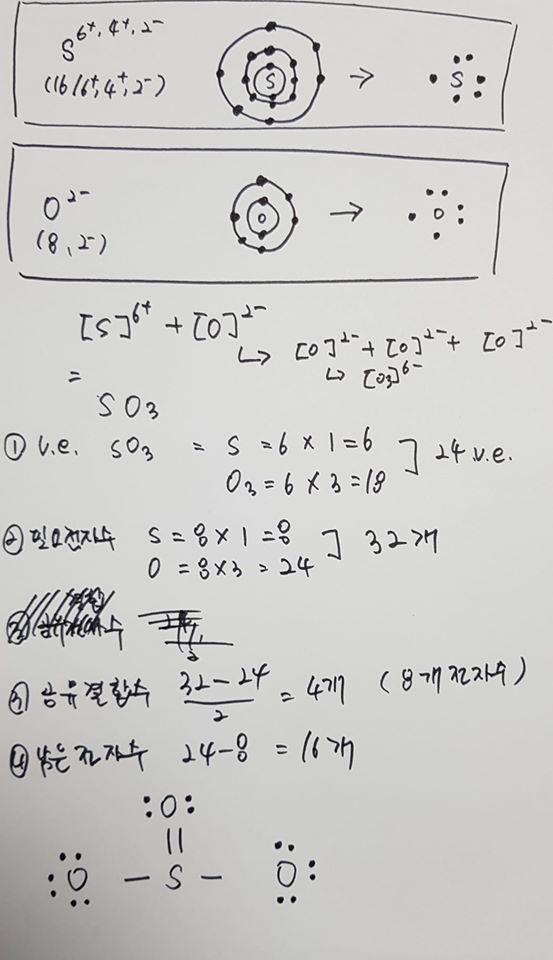 S^6+, 4+, 2-
(16/6+, 4+, 2-)
S → S
O^2-
(8, 2-)
O → O
[S]^6+ + [O]^2-
↳ [O]^2- + [O]^2- + [O]^2-
↳ [O3]^6-
=
SO3
① v.e. SO3 = S = 6 × 1 = 6
O3 = 6 × 3 = 18
] 24 v.e.
② 필요전자수 S = 8 × 1 = 8
O = 8 × 3 = 24
] 32개
③ 공유결합수 32-24/2 = 4개 (8개 전자수)
④ 남은전자수 24-8 = 16개
:O:
||
:O - S - O: